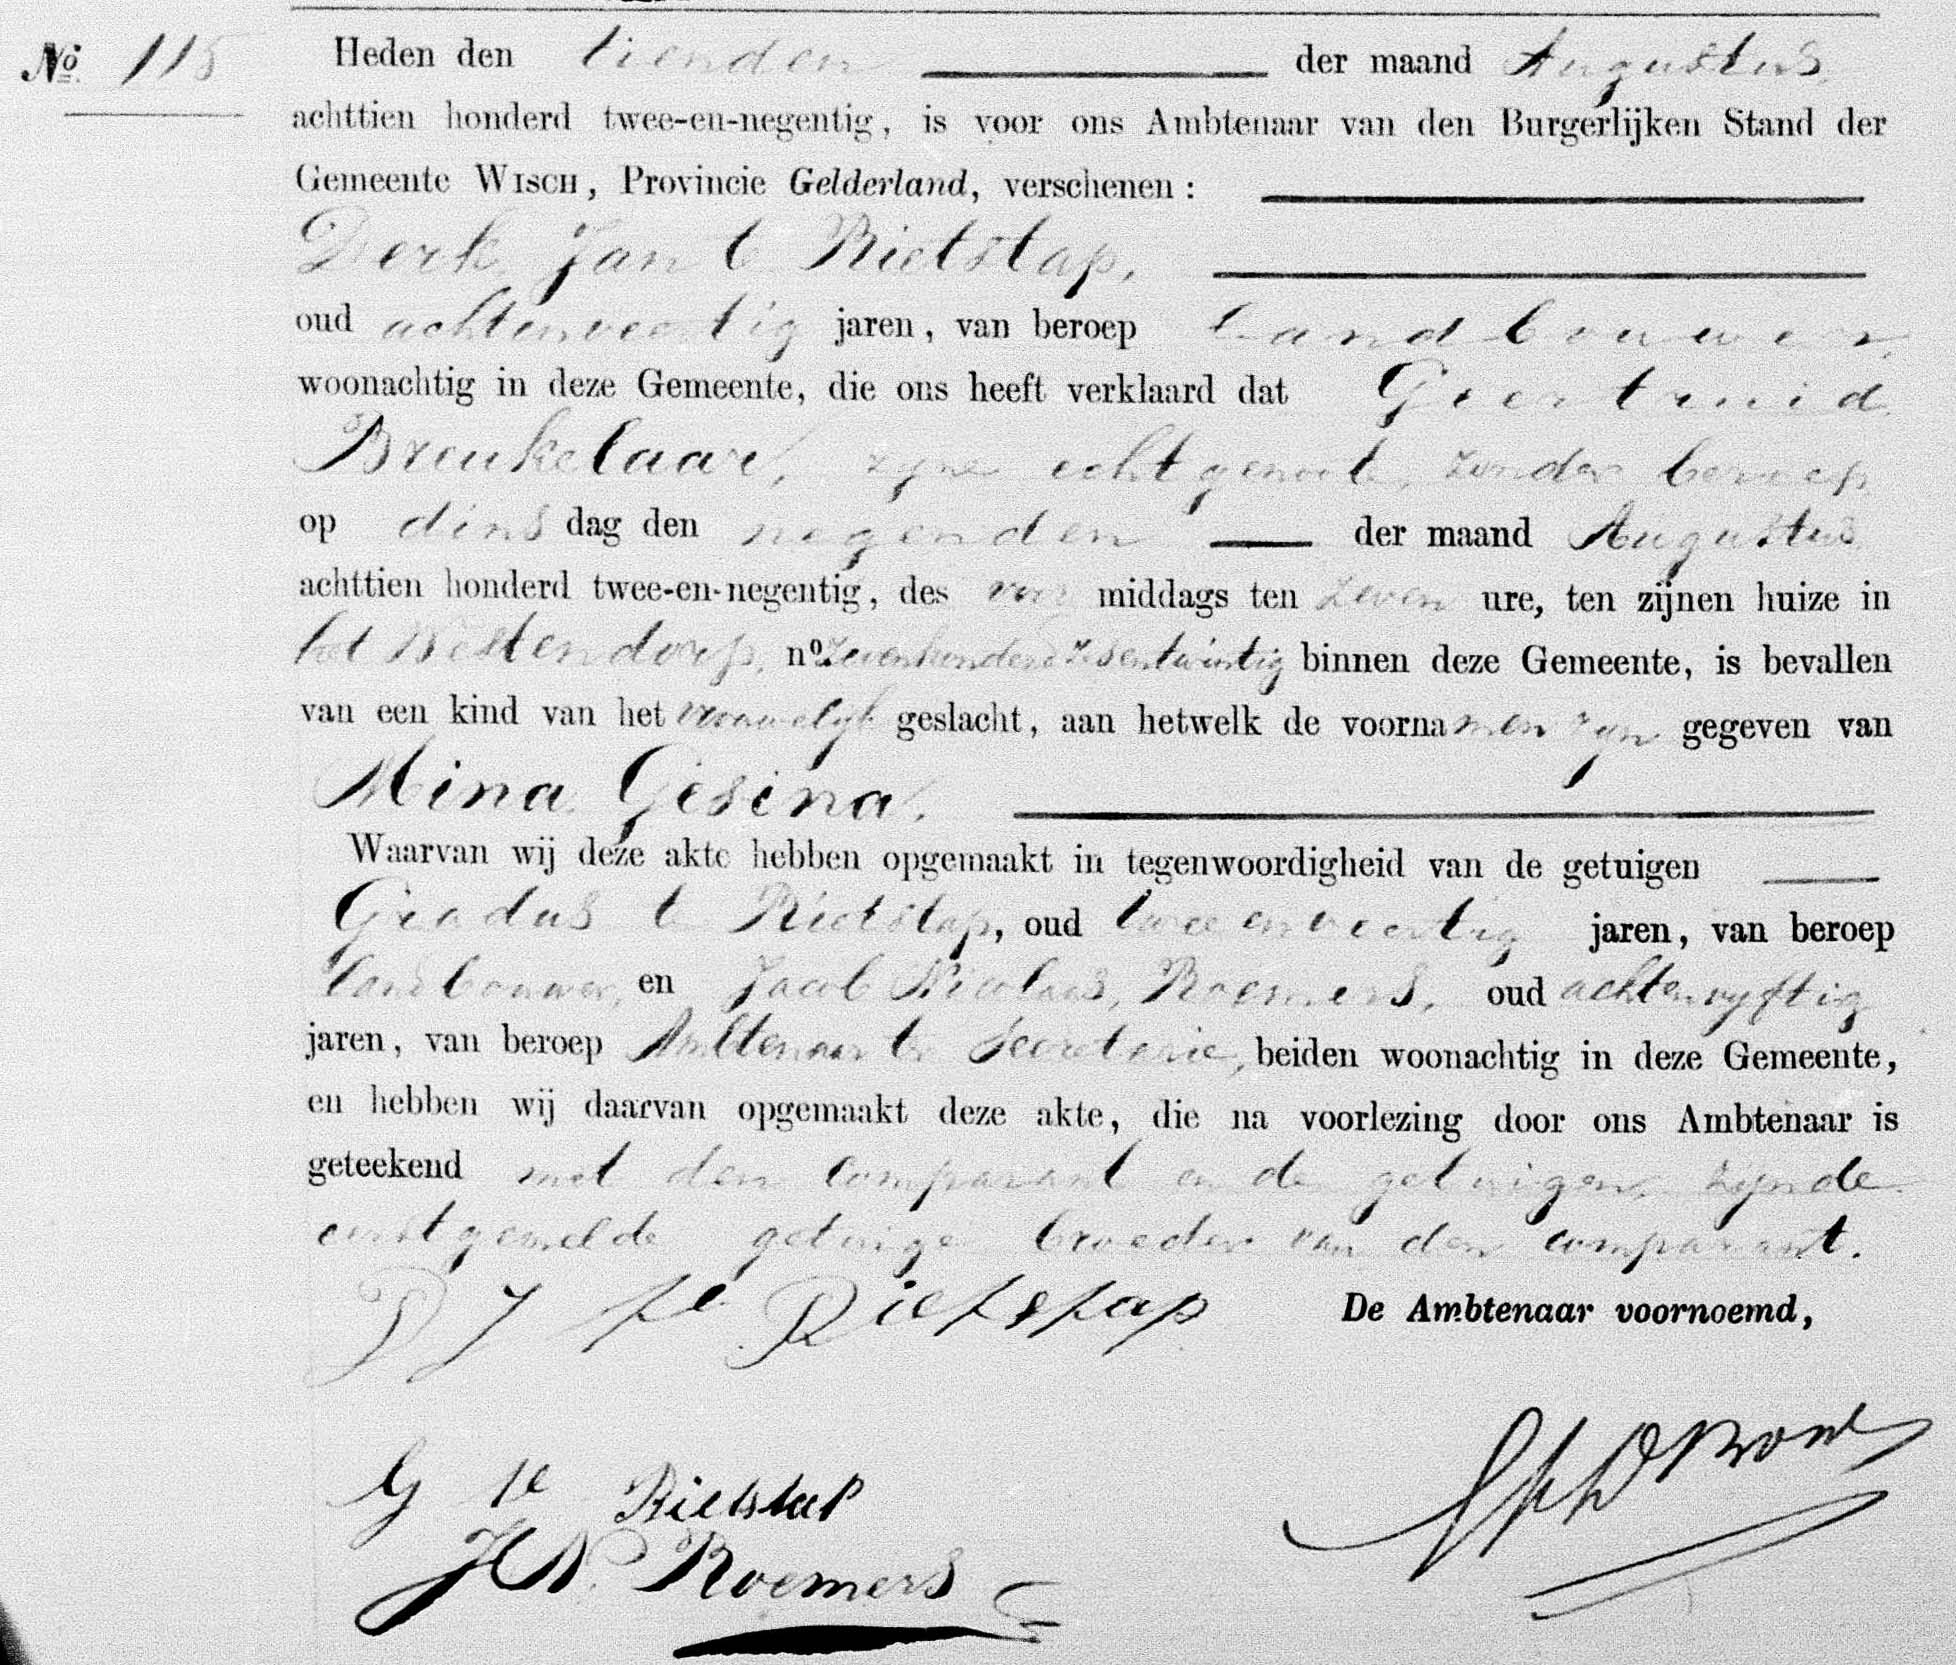 No. 115 Heden den tienden der maand Augustus
achttien honderd twee-en-negentig, is voor ons Ambtenaar van den Burgerlijken Stand der
Gemeente WISCH, Provincie Gelderland, verschenen:
Derk Jan te Rietstap,
oud achtenveertig jaren, van beroep landbouwer,
woonachtig in deze Gemeente, die ons heeft verklaard dat Geertruid
Breukelaar, zijne echtgenoote, zonder beroep
op dinsdag den negenden der maand Augustus
achttien honderd twee-en-negentig, des voormiddags ten zeven ure, ten zijnen huize in
het Westendorp, no. zevenhonderd zesentwintig binnen deze Gemeente, is bevallen
van een kind van het vrouwelijk geslacht, aan hetwelk de voornamen zijn gegeven van
Mina Gesina.
Waarvan wij deze akte hebben opgemaakt in tegenwoordigheid van de getuigen
Gradus te Rietstap, oud tweeenveertig jaren, van beroep
landbouwer, en Jacob Nicolaas Roemers, oud achtenvyftig
jaren, van beroep Ambtenaar ter Secretarie, beiden woonachtig in deze Gemeente,
en hebben wij daarvan opgemaakt deze akte, die na voorlezing door ons Ambtenaar is
geteekend met den comparant en de getuigen, zijnde
eerstgemelde getuige broeder van den comparant.
D J te Rietstap De Ambtenaar voornoemd,
G te Rietstap
J N Roemers